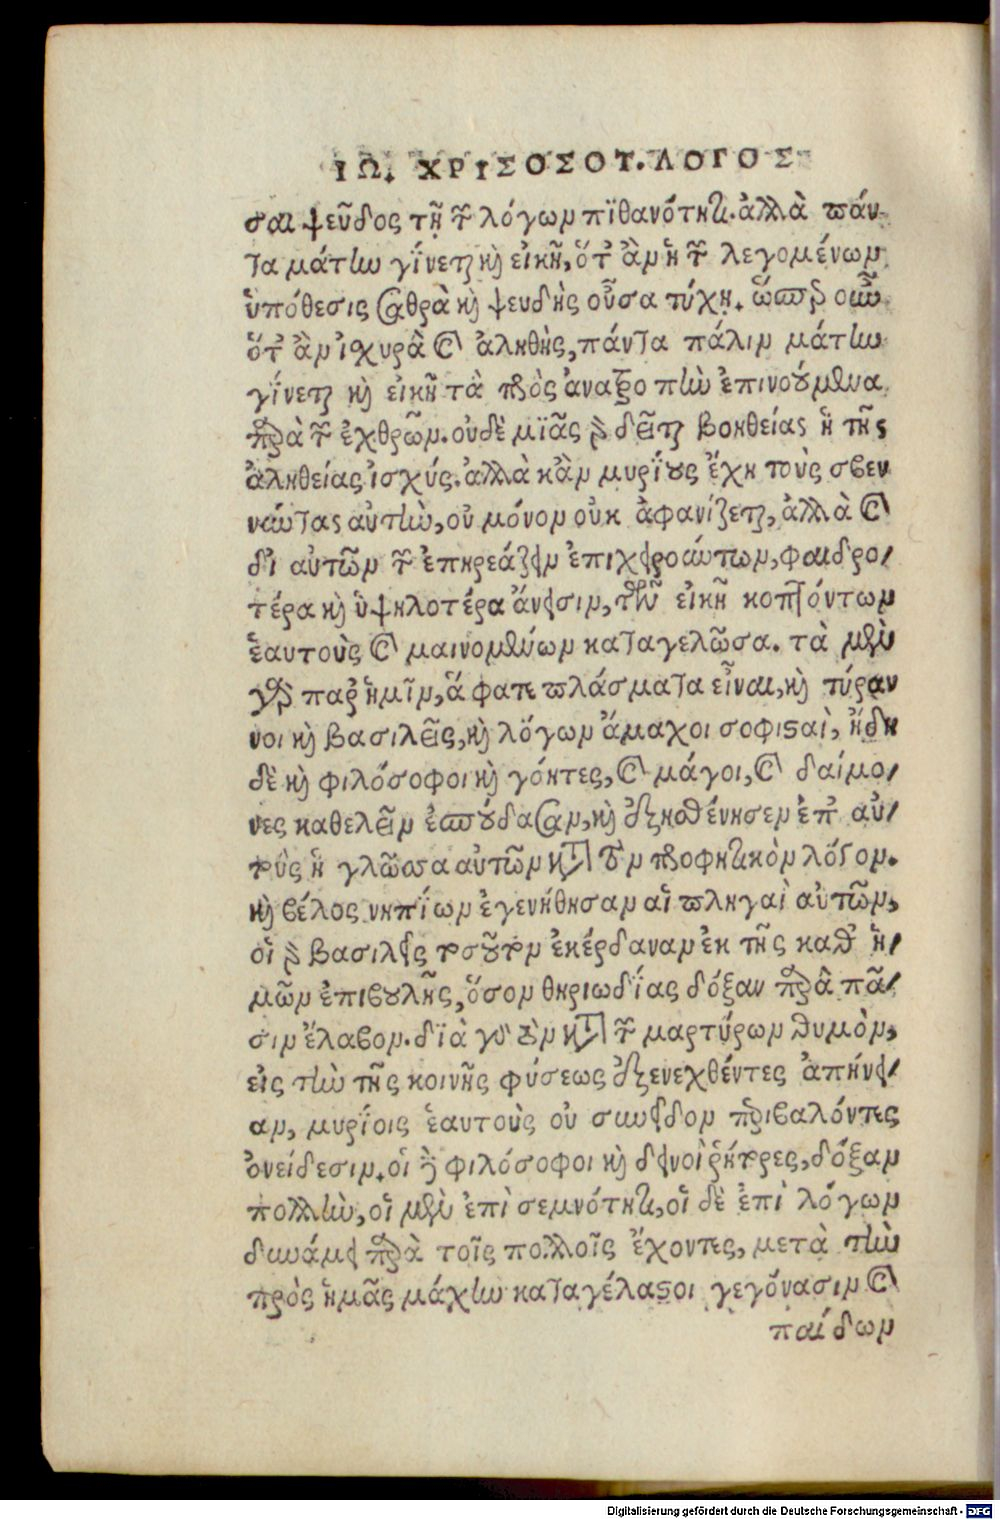 ΙΩ. ΧΡΙΣΟΣΟΤ. ΛΟΓΟΣ
σαι ψεῦδος τῇ τῶν λόγωμ πϊθανότητι. ἀλλὰ πάν
τα μάτην γίνεται καὶ εἰκῆ, ὅταν ἂμ ἡ τῶν λεγομένωμ
ὑπόθεσις σαθρὰ καὶ ψευδὴς οὖσα τύχῃ. ὥσπερ οὖν
ὅταν ἂμ ἰσχυρὰ καὶ ἀληθὴς, πάντα πάλιμ μάτην
γίνεται καὶ εἰκῆ τὰ πρὸς ἀνατροπὴν ἐπινοούμενα
παρὰ τῶν ἐχθρῶμ. οὐδὲ μϊᾶς γὰρ δεῖται βοηθείας ἡ τῆς
ἀληθείας ἰσχύς. ἀλλὰ κἂμ μυρίους ἔχῃ τοὺς σβεν
νύντας αὐτὴν, οὐ μόνομ οὐκ ἀφανίζεται, ἀλλὰ καὶ
δι αὐτῶμ τῶν ἐπηρεάζειμ ἐπιχειρούντωμ, φαιδρο/
τέρα καὶ ὑψηλοτέρα ἄνεισιμ, τῶν εἰκῆ κοπτόντωμ
ἑαυτοὺς καὶ μαινομένωμ καταγελῶσα. τὰ μὲν
γὰρ παρ ἡμῖμ, ἅ φατε πλάσματα εἶναι, καὶ τύραν
νοι καὶ βασιλεῖς, καὶ λόγωμ ἄμαχοι σοφισταὶ, ἤδη
δὲ καὶ φιλόσοφοι καὶ γόητες, καὶ μάγοι, καὶ δαίμο/
νες καθελεῖμ ἐσπούδασαμ, καὶ ἐξησθένησεμ ἐπ αὐ/
τοὺς ἡ γλῶσσα αὐτῶμ κατὰ τὸμ προφητικὸμ λόγομ.
καὶ βέλος νηπίωμ ἐγενήθησαμ αἱ πληγαὶ αὐτῶμ,
οἱ γὰρ βασιλεῖς τοσοῦτομ ἐκέρδαναμ ἐκ τῆς καθ ἡ/
μῶμ ἐπιβουλῆς, ὅσομ θηριωδίας δόξαν παρὰ πᾶ/
σιμ ἔλαβομ. δϊὰ γὰρ τὸμ κατὰ τῶν μαρτύρωμ θυμὸμ,
εἰς τὴν τῆς κοινῆς φύσεως ἐξενεχθέντες ἀπήνει/
αμ, μυρίοις ἑαυτοὺς οὐ συνεῖδομ περιβαλόντες
ὀνείδεσιμ. οἱ δὲ φιλόσοφοι καὶ δεινοὶ ῥήτορες, δόξαμ
πολλὴν, οἱ μὲν ἐπὶ σεμνότητι, οἱ δὲ ἐπὶ λόγωμ
δυνάμει παρὰ τοῖς πολλοῖς ἔχοντες, μετὰ τὴν
πρὸς ἡμᾶς μάχην καταγέλαστοι γεγόνασιμ καὶ
παίδωμ
Digitalisierung gefördert durch die Deutsche Forschungsgemeinschaft - DFG